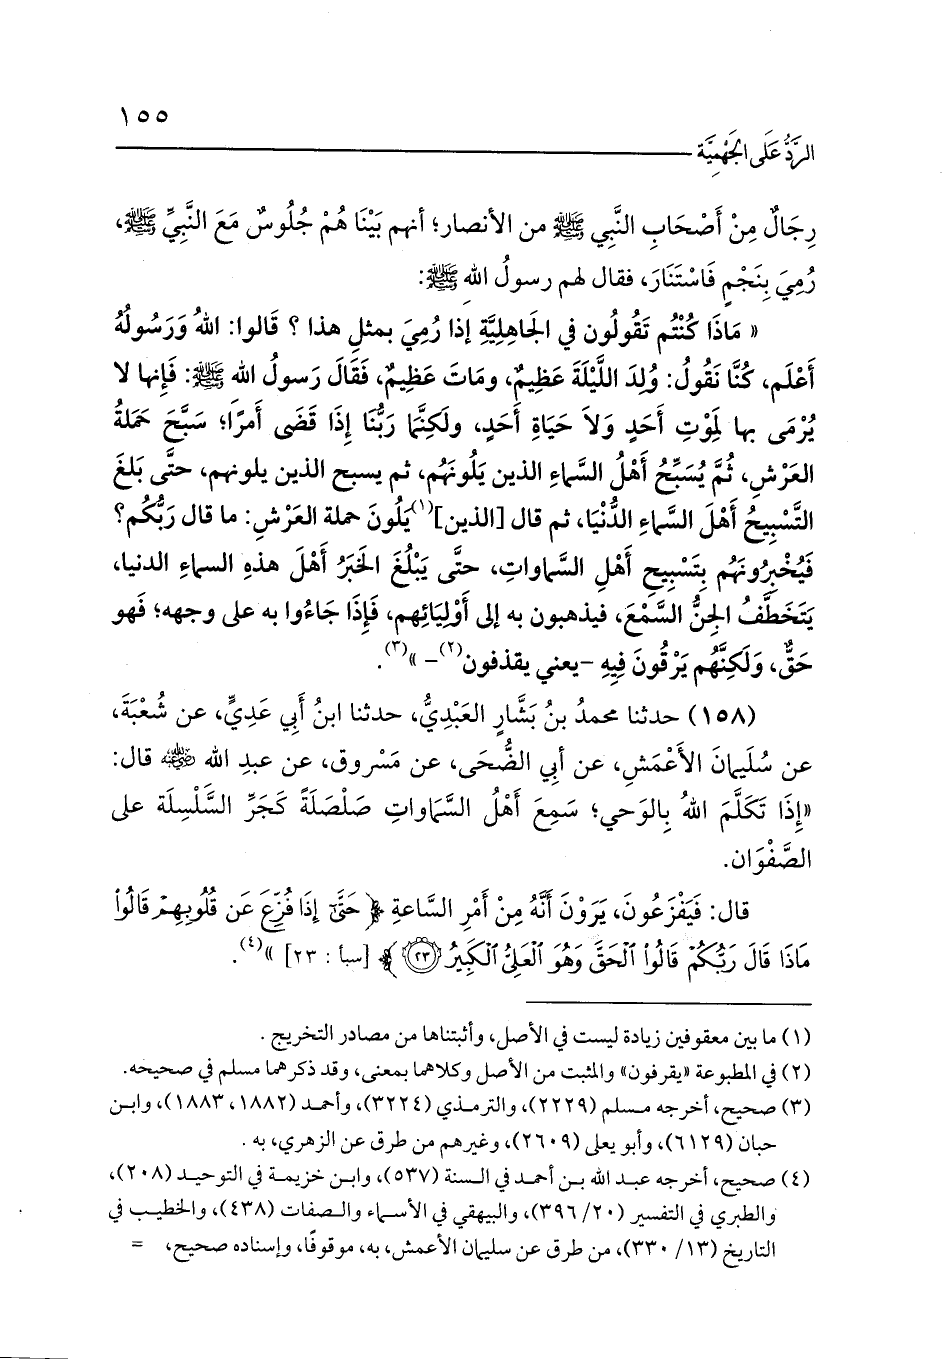 ١٥٥
الرَّدُّ عَلَى الجَهْمِيَّة
رِجَالٌ مِنْ أَصْحَابِ النَّبِي ﷺ من الأنصار؛ أنهم بَيْنَا هُمْ جُلُوسٌ مَعَ النَّبِيِّ ﷺ،
رُمِيَ بِنَجْمٍ فَاسْتَنَارَ، فقال لهم رسولُ اللهِ ﷺ:
« مَاذَا كُنْتُم تَقُولُون في الجَاهِليَّةِ إذا رُمِيَ بمثلِ هذا ؟ قَالوا: اللهُ وَرَسُولُهُ
أَعْلَم، كُنَّا نَقُولُ: وُلِدَ اللَّيْلَةَ عَظِيمٌ، ومَاتَ عَظِيمٌ، فَقَالَ رَسولُ الله ﷺ: فَإنها لا
يُرْمَى بها لَمِوْتِ أَحَدٍ وَلاَ حَيَاةِ أَحَدٍ، ولَكِنَّمَا رَبُّنَا إذَا قَضَى أَمرًا؛ سَبَّحَ حَمَلةُ
العَرْشِ، ثُمَّ يُسَبِّحُ أَهْلُ السَّماءِ الذين يَلُونَهُم، ثم يسبح الذين يلونهم، حتَّى بَلغَ
التَّسْبِيحُ أَهْلَ السَّماءِ الدُّنْيَا، ثم قال [الذين](١) يَلُونَ حملة العَرْشِ: ما قال رَبُّكُم؟
فَيُخْبِرُونَهُم بِتَسْبِيحِ أَهْلِ السَّماواتِ، حتَّى يَبْلُغَ الخَبَرُ أَهْلَ هذهِ السماءِ الدنيا،
يَتَخَطَّفُ الجِنُّ السَّمْعَ، فيذهبون به إلى أَوْلِيَائِهِم، فَإِذَا جَاءُوا به على وجهه؛ فهو
حَقٌّ، وَلَكِنَّهُم يَرْقُونَ فِيهِ -يعني يقذفون(٢)- »(٣).
(١٥٨) حدثنا محمدُ بنُ بَشَّارٍ العَبْدِيُّ، حدثنا ابنُ أَبي عَدِيٍّ، عن شُعْبَةَ،
عن سُلَيمانَ الأَعْمَشِ، عن أبي الضُّحَى، عن مَسْروق، عن عبدِ الله رضي الله عنه قال:
«إِذَا تَكَلَّمَ اللهُ بِالوَحي؛ سَمِعَ أَهْلُ السَّماواتِ صَلْصَلَةً كَجَرِّ السَّلْسِلَة على
الصَّفْوَان.
قال: فَيَفْزَعُونَ، يَرَوْنَ أَنَّهُ مِنْ أَمْرِ السَّاعةِ ﴿ حَتَّىٰٓ إِذَا فُزِّعَ عَن قُلُوبِهِمْ قَالُواْ
مَاذَا قَالَ رَبُّكُمْ قَالُواْ ٱلْحَقَّ وَهُوَ ٱلْعَلِىُّ ٱلْكَبِيرُ ﴿٢٣﴾ ﴾ [سبأ : ٢٣] »(٤).
(١) ما بين معقوفين زيادة ليست في الأصل، وأثبتناها من مصادر التخريج .
(٢) في المطبوعة «يقرفون» والمثبت من الأصل وكلاهما بمعنى، وقد ذكرهما مسلم في صحيحه.
(٣) صحيح، أخرجه مسلم (٢٢٢٩)، والترمذي (٣٢٢٤)، وأحمد (١٨٨٢، ١٨٨٣)، وابن
حبان (٦١٢٩)، وأبو يعلى (٢٦٠٩)، وغيرهم من طرق عن الزهري، به .
(٤) صحيح، أخرجه عبد الله بن أحمد في السنة (٥٣٧)، وابن خزيمة في التوحيد (٢٠٨)،
والطبري في التفسير (٣٩٦/٢٠)، والبيهقي في الأسماء والصفات (٤٣٨)، والخطيب في
التاريخ (١٣/ ٣٣٠)، من طرق عن سليمان الأعمش، به، موقوفًا، وإسناده صحيح، =